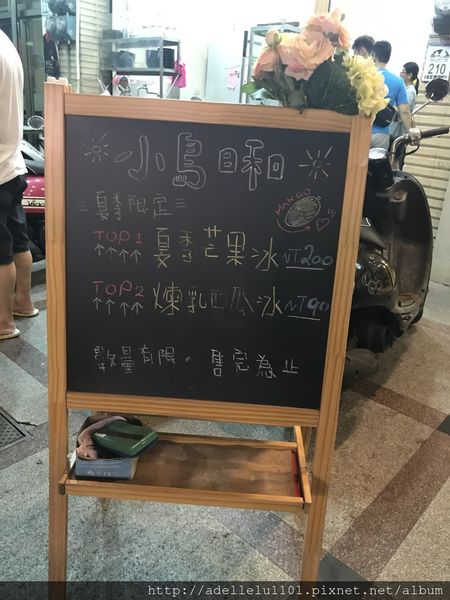 小島日和
夏季限定
MANGO
TOP1 夏季芒果冰 NT200
TOP2 煉乳西瓜冰 NT90
數量有限。售完為止
210
http://adellelu1101.pixnet.net/album